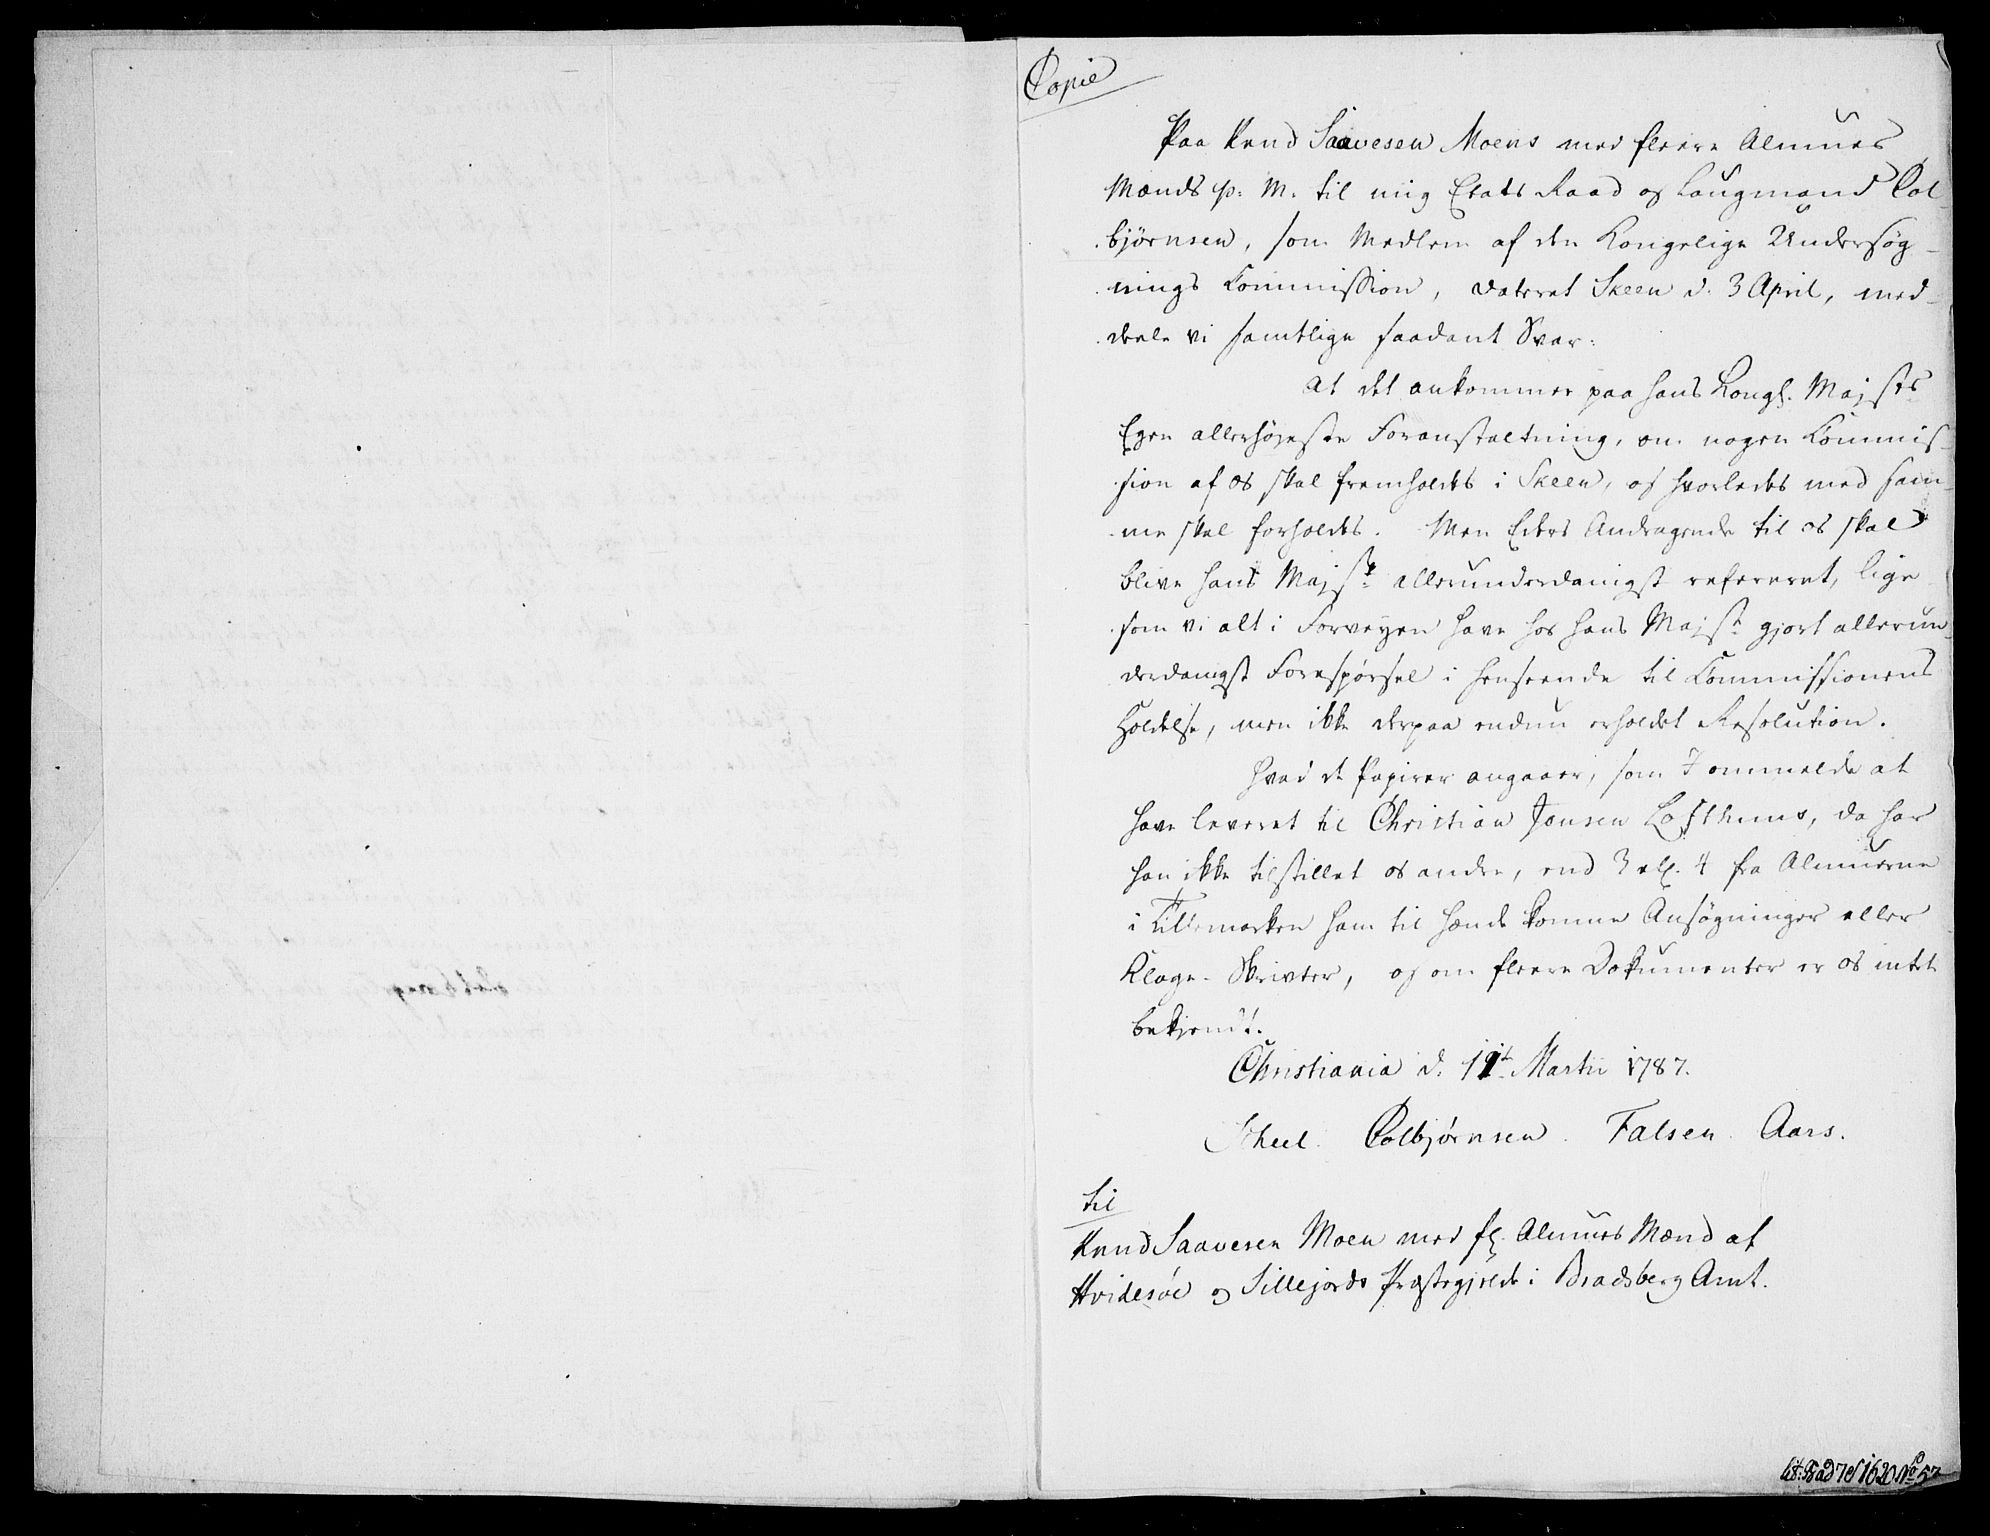 Copie
Paa Knud Saavesen Moens med fleere Almues
Mænds p. M. til mig Etats Raad og Laugmand Col-
bjørnsen, som Medlem af den Kongelige Undersøg-
nings Commission, dateret Skeen d. 3 April, med-
deele vi samtlige saadant Svar:
at det ankommer paa hans Kongl. Majsts
Egen allerhøjeste Foranstaltning, om nogen Commis-
sion af os skal fremholdes i Skeen, og hvorledes med sam-
me skal forholdes. Men Eders Andragende til os skal
blive hans Majst allerunderdanigst refereret, lige
som vi alt i Forveyen have hos hans Majst gjort allerun-
derdanigst Forespørsel i henseende til Commissionens
Holdelse, men ikke derpaa endnu erholdet Resolution.
Hvad de Papirer angaaer, som I ommelde at
have leveret til Christian Jensen Lofthuus, da har
han ikke tilstillet os andre, end 3 ell. 4 fra Almuerne
i Tillemarken ham til hænde komne Ansøgninger eller
Klage-Skrivter, og om fleere Dokumenter er os intet
bekjendt.
Christiania d. 11t Martii 1787.
Scheel. Colbjørnsen. Falsen. Aars.
til
Knud Saavesen Moen med fl. Almues Mænd af
Hvidesøe og Sillejords Præstegjelde i Bradsberg Amt.